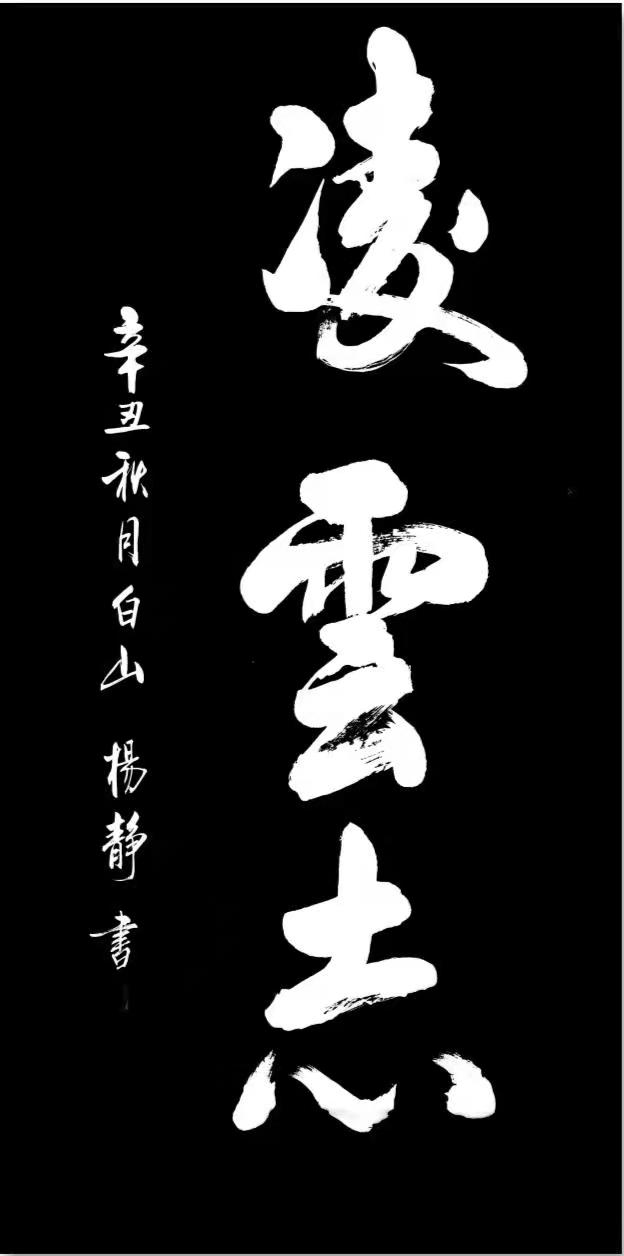 凌雲志
辛丑秋月白山 楊靜書